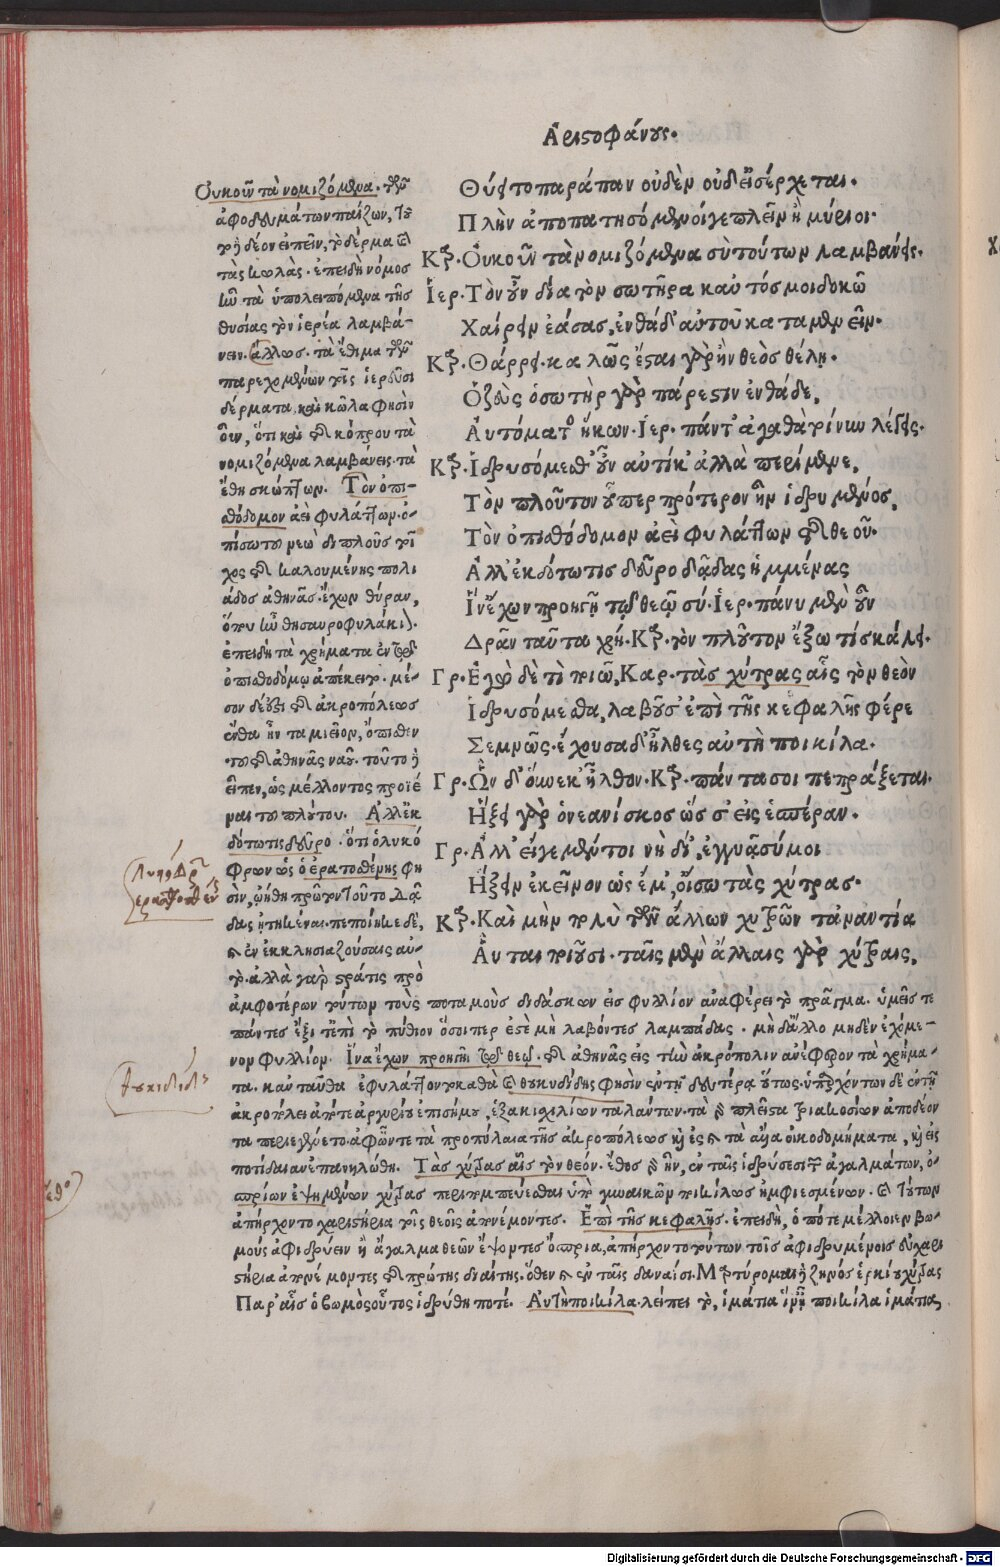 Ἀριστοφάνους.
Θύει τοπαράπαν οὐδὲν οὐδ' εἰσέρχεται.
Πλὴν ἀποπατησόμενοί γε πλεῖν ἢ μύριοι.
Κᾳρ. Οὐκοῦν τὰ νομιζόμενα σὺ τούτων λαμβάνεις.
Ἱερ. Τὸν οὖν δία τὸν σωτῆρα καὐτός μοι δοκῶ
Χαίρειν ἐάσας, ἐνθάδ' αὐτοῦ καταμενεῖν.
Κᾳρ. Θάρρει. καλῶς ἔσται γὰρ ἢν θεὸς θέλῃ.
Ὁ ζεὺς ὁ σωτὴρ γὰρ πάρεστιν ἐνθάδε,
Αὐτόματος ἥκων. Ἱερ. πάντ' ἀγαθὰ τοίνυν λέγεις.
Κᾳρ. Ἱδρυσόμεθ' οὖν αὐτίκ' ἀλλὰ περίμενε,
Τὸν πλοῦτον οὗπερ πρότερον ἦν ἱδρυμένος,
Τὸν ὀπισθόδομον ἀεὶ φυλάττων τοῦ θεοῦ.
Ἀλλ' ἐκδότω τις δεῦρο δᾷδας ἡμμένας
Ἵν' ἔχων προηγῇ τῷ θεῷ σύ. Ἱερ. πάνυ μὲν οὖν
Δρᾶν ταῦτα χρή. Κᾳρ. τὸν πλοῦτον ἔξω τίς κάλει.
Γρ. Ἐγὼ δὲ τί ποιῶ, Καρ. τὰς χύτρας αἷς τὸν θεὸν
Ἱδρυσόμεθα, λαβοῦσ' ἐπὶ τῆς κεφαλῆς φέρε
Σεμνῶς. ἔχουσα δ' ἦλθες αὐτὴ ποικίλα.
Γρ. Ὧν δ' οὕνεκ' ἦλθον. Κᾳρ. πάντα σοι πεπράξεται.
Ἥξει γὰρ ὁ νεανίσκος ὥς σ' εἰς ἑσπέραν.
Γρ. Ἀλλ' εἴγε μέντοι νὴ δί', ἐγγυᾷ σύ μοι
Ἥξειν ἐκεῖνον ὡς ἔμ', οἴσω τὰς χύτρας.
Κᾳρ. Καὶ μὴν πολὺ τῶν ἄλλων χυτρῶν τἀναντία
Αὗται ποιοῦσι. ταῖς μὲν ἄλλαις γὰρ χύτραις,
Οὐκοῦν τὰ νομιζόμενα. τῶν
ἀφοδευμάτων παίζων, τοῦ
το ᾗ δέον εἰπεῖν, τὸ δέρμα καὶ
τὰς κωλὰς. ἐπειδὴ νόμος
ἦν τὰ ὑπολειπόμενα τῆς
θυσίας τὸν ἱερέα λαμβά-
νειν. ἄλλως. τὰ ἔθιμα τῶν
παρεχομένων τοῖς ἱερεῦσι
δέρματα, καὶ κῶλα φησὶν
οὖν, ὅτι καὶ τοῦ κόπρου τὰ
νομιζόμενα λαμβάνεις. τὰ
ἔθη σκώπτων. Τὸν ὀπι-
σθόδομον ἀεὶ φυλάττων. ὀ-
πίσω τοῦ νεὼ διπλοῦς τοῖ
χος τοῦ καλουμένης πολι
άδος ἀθηνᾶς. ἔχων θύραν,
ὅπου ἦν θησαυροφυλάκιον.
ἐπειδὴ τὰ χρήματα ἐν τῷ
ὀπισθοδόμῳ ἀπέκειτο. μέ-
ρος δέ ἐστι τοῦ ἀκροπόλεως
ἔνθα ἦν ταμιεῖον, ὄπισθεν
τοῦ τοῦ ἀθηνᾶς ναοῦ. τοῦτο ᾗ
εἶπεν, ὡς μέλλοντος προϊέ
ναι τοῦ πλούτου. Ἀλλ' ἐκ
δότω τις δεῦρο. ὅτι ὁ λυκό
φρων ὡς ὁ ἐρατοσθένης φη
σὶν, ᾠήθη πρῶτον τοῦτο δᾷ
δας ᾐτηκέναι. πεποίηκε δέ,
καὶ ἐν ἐκκλησιαζούσαις αὐ-
τὸ. ἀλλὰ γὰρ στράτις πρὸ
ἀμφοτέρων τούτων τοὺς ποταμοὺς διδάσκων εἰς φύλλιον ἀναφέρει τὸ πρᾶγμα. ὑμεῖς τε
πάντες ἔξιτ' ἐπὶ τὸ πύθιον ὅσοιπερ ἐστὲ μὴ λαβόντες λαμπάδας. μὴ δ' ἄλλο μηδὲν ἐχόμε-
νον φυλλίου. Ἵνα ἔχων προηγῇς τῷ θεῷ. τοῦ ἀθηνᾶς εἰς τὴν ἀκρόπολιν ἀνέφερον τὰ χρήμα-
τα. κἀνταῦθα ἐφυλάττοντο καθὰ καὶ θουκυδίδης φησὶν ἐν τῇ δευτέρᾳ οὕτως. ὑπαρχόντων δὲ ἐν τῇ
ἀκροπόλει ἀπό τε ἀργυρίου ἐπισήμου, ἑξακισχιλίων ταλάντων. τὰ γὰρ πλεῖστα τριακοσίων ἀποδέον
τα περιεγένετο. ἀφ' ὧν τε τὰ προπύλαια τῆς ἀκροπόλεως καὶ ἐς καὶ τὰ ἄλλα οἰκοδομήματα, καὶ εἰς
ποτίδαιαν ἐπανηλώθη. Τὰς χύτρας αἷς τὸν θεόν. ἔθος γὰρ ἦν, ἐν ταῖς ἱδρύσεσι τῶν ἀγαλμάτων, ὀ-
σπρίων ἑψημένων χύτρας περιπομπεύεσθαι ὑπὸ γυναικῶν ποικίλως ἠμφιεσμένων. καὶ τούτων
ἀπήρχοντο χαριστήρια τοῖς θεοῖς ἀπονέμοντες. Ἐπὶ τῆς κεφαλῆς. ἐπειδὴ, ὁπότε μέλλοιεν βω-
μοὺς ἀφιδρύειν ἢ ἄγαλμα θεῶν ἕψοντες ὄσπρια, ἀπήρχοντο τούτων τοῖς ἀφιδρυμένοις εὐχαρι
στήρια ἀπονέμοντες τοῦ πρώτης διαίτης. ὅθεν καὶ ἐν ταῖς δαναΐσι. Μαρτύρομαι ᾗ ζηνὸς ἑρκίου χύτρας
Παρ' αἷς ὁ βωμὸς οὗτος ἱδρύθη ποτέ. Αὐτὴ ποικίλα. λείπει τὸ, ἱμάτια ἵν' ᾖ ποικίλα ἱμάτια,
Digitalisierung gefördert durch die Deutsche Forschungsgemeinschaft - DFG